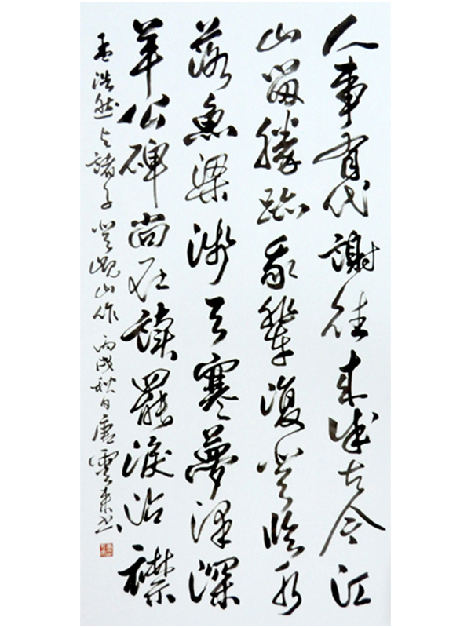 人事有代謝往来成古今江
山留勝跡我輩復登臨水
落魚梁淺天寒夢澤深
羊公碑尚在讀罷淚沾襟
孟浩然与諸子登峴山作 丙戌秋日唐雲来书